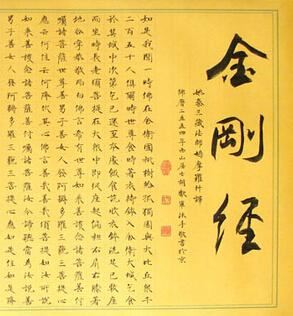 金剛經
姚秦三藏法師鳩摩羅什譯
佛曆二五五四年西山居士胡敬軍沐手敬書於京
如是我聞一時佛在舍衛國祇樹給孤獨園與大比丘眾千
二百五十人俱爾時世尊食時著衣持鉢入舍衛大城乞食
於其城中次第乞已還至本處飯食訖收衣鉢洗足已敷座
而坐時長老須菩提在大眾中即從座起偏袒右肩右膝著
地合掌恭敬而白佛言希有世尊如來善護念諸菩薩善付
囑諸菩薩世尊善男子善女人發阿耨多羅三藐三菩提心
應云何住云何降伏其心佛言善哉善哉須菩提如汝所說
如來善護念諸菩薩善付囑諸菩薩汝今諦聽當為汝說善
男子善女人發阿耨多羅三藐三菩提心應如是住如是降